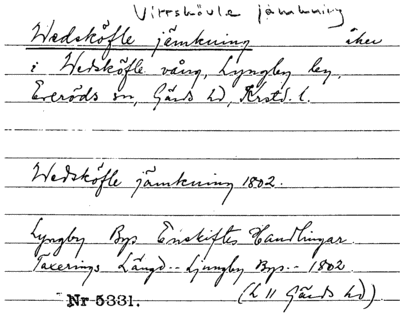 Vittskövle jämkning
Wedsköfle jämkning åker
i Wedsköfle vång, Lyngby by,
Everöds sn, Gärds hd, Krstd. l.
Wedsköfle jämkning 1802.
Lyngby Bys Enskiftes Handlingar
Taxerings Längd -- Ljungby Bys -- 1802
Nr 5331. (L 11 Gärds hd)